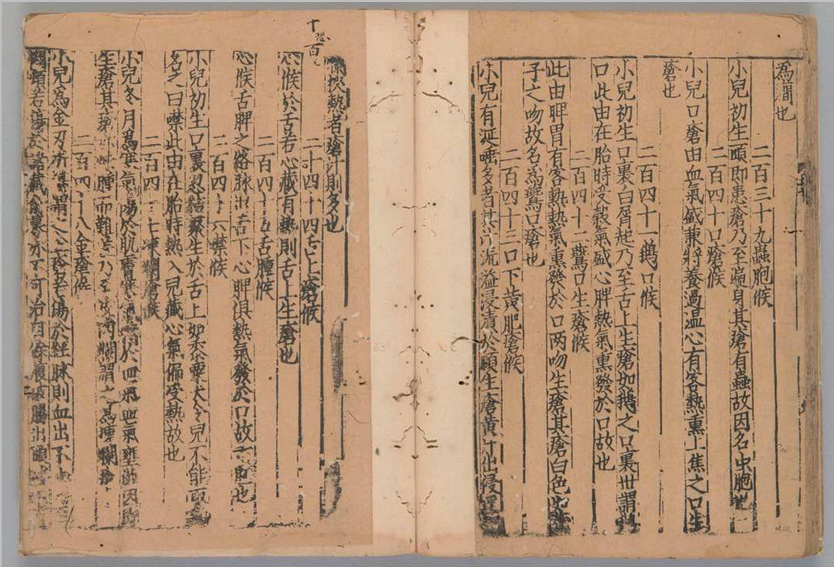 爲涸也
二百三十九蟲胞候
小兒初生頭即患瘡乃至遍身其瘡有蟲故因名虫胞也
二百四十口瘡候
小兒口瘡由血氣盛兼將養過温心有客熱熏上焦之口生
瘡也
二百四十一鵝口候
小兒初生口裏白屑起乃至舌上生瘡如鵝之口裏世謂
口此由在胎時受穀氣盛心脾熱氣熏發於口故也
二百四十二鷰口生瘡候
此由脾胃有客熱熱氣熏發於口兩吻生瘡其瘡白色如
子之吻故名爲鷰口瘡也
二百四十三口下黄肥瘡候
小兒有涎唾多者其汁流溢浸漬於頤生瘡黄汁出浸
挾熱者瘡汁則多也
二十四十四舌上瘡候
心候於舌若心藏有熱則舌上生瘡也
二百四十五舌腫候
心候舌脾之絡脉出舌下心脾俱熱氣發於口故舌腫也
二百四十六噤候
小兒初生口裏忽結聚生於舌上如黍粟大令兒不能取
名之曰噤此由在胎時熱入兒藏心氣偏受熱故也
二百四十七凍爛瘡候
小兒冬月爲寒氣傷於肌膚寒 於血氣血氣壅 因
生瘡其 腫而難 乃至 爛謂之爲凍爛
二百四十八金瘡候
小兒爲金刃所傷謂之金瘡若傷於經脉則血出不
若傷於 藏 亦不可治自餘 腸出